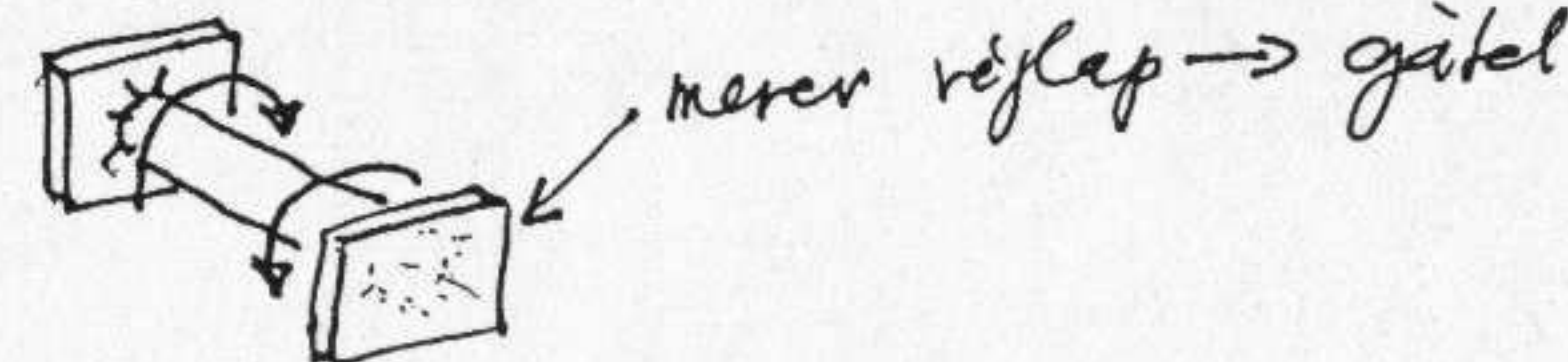 merev véglap → gátol